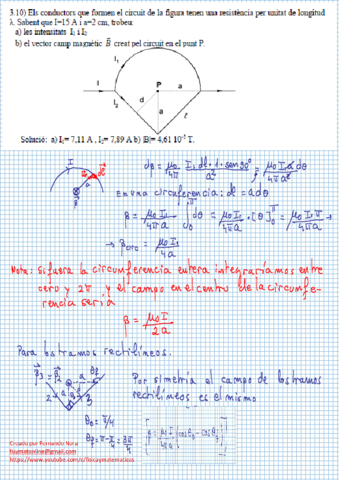 3.10) Els conductors que formen el circuit de la figura tenen una resistència per unitat de longitud
λ. Sabent que I=15 A i a=2 cm, trobeu:
a) les intensitats I₁ i I₂
b) el vector camp magnètic B⃗ creat pel circuit en el punt P.
I₁
P
I
I
I₂
d
a
a
ℓ
Solució: a) I₁= 7,11 A , I₂= 7,89 A b) |B|= 4,61·10⁻⁵ T.
I
dβ = μ₀/4π I₁ dl · 1 · sen 90º / a² = μ₀ I₁ a dθ / 4π a²
En una circunferencia: dl = a dθ
β = μ₀ I₁ / 4π a ∫₀^π dθ = μ₀ I₁ / 4π a · [θ]₀^π = μ₀ I₁ π / 4π a →
→ β arc = μ₀ I₁ / 4a
Nota: Si fuera la circumferencia entera integraríamos entre
cero y 2π y el campo en el centro de la circumfe-
rencia sería
β = μ₀ I / 2a
Para los tramos rectilíneos.
Por simetría el campo de los tramos
rectilíneos es el mismo
θ₀ = π/4
θf = π - π/4 = 3π/4
[β = μ₀ I / 4π a (cos θ₀ - cos θf)]
Creado por Fernando Nora
haymatonline@gmail.com
https://www.youtube.com/c/fisicaymatematicas